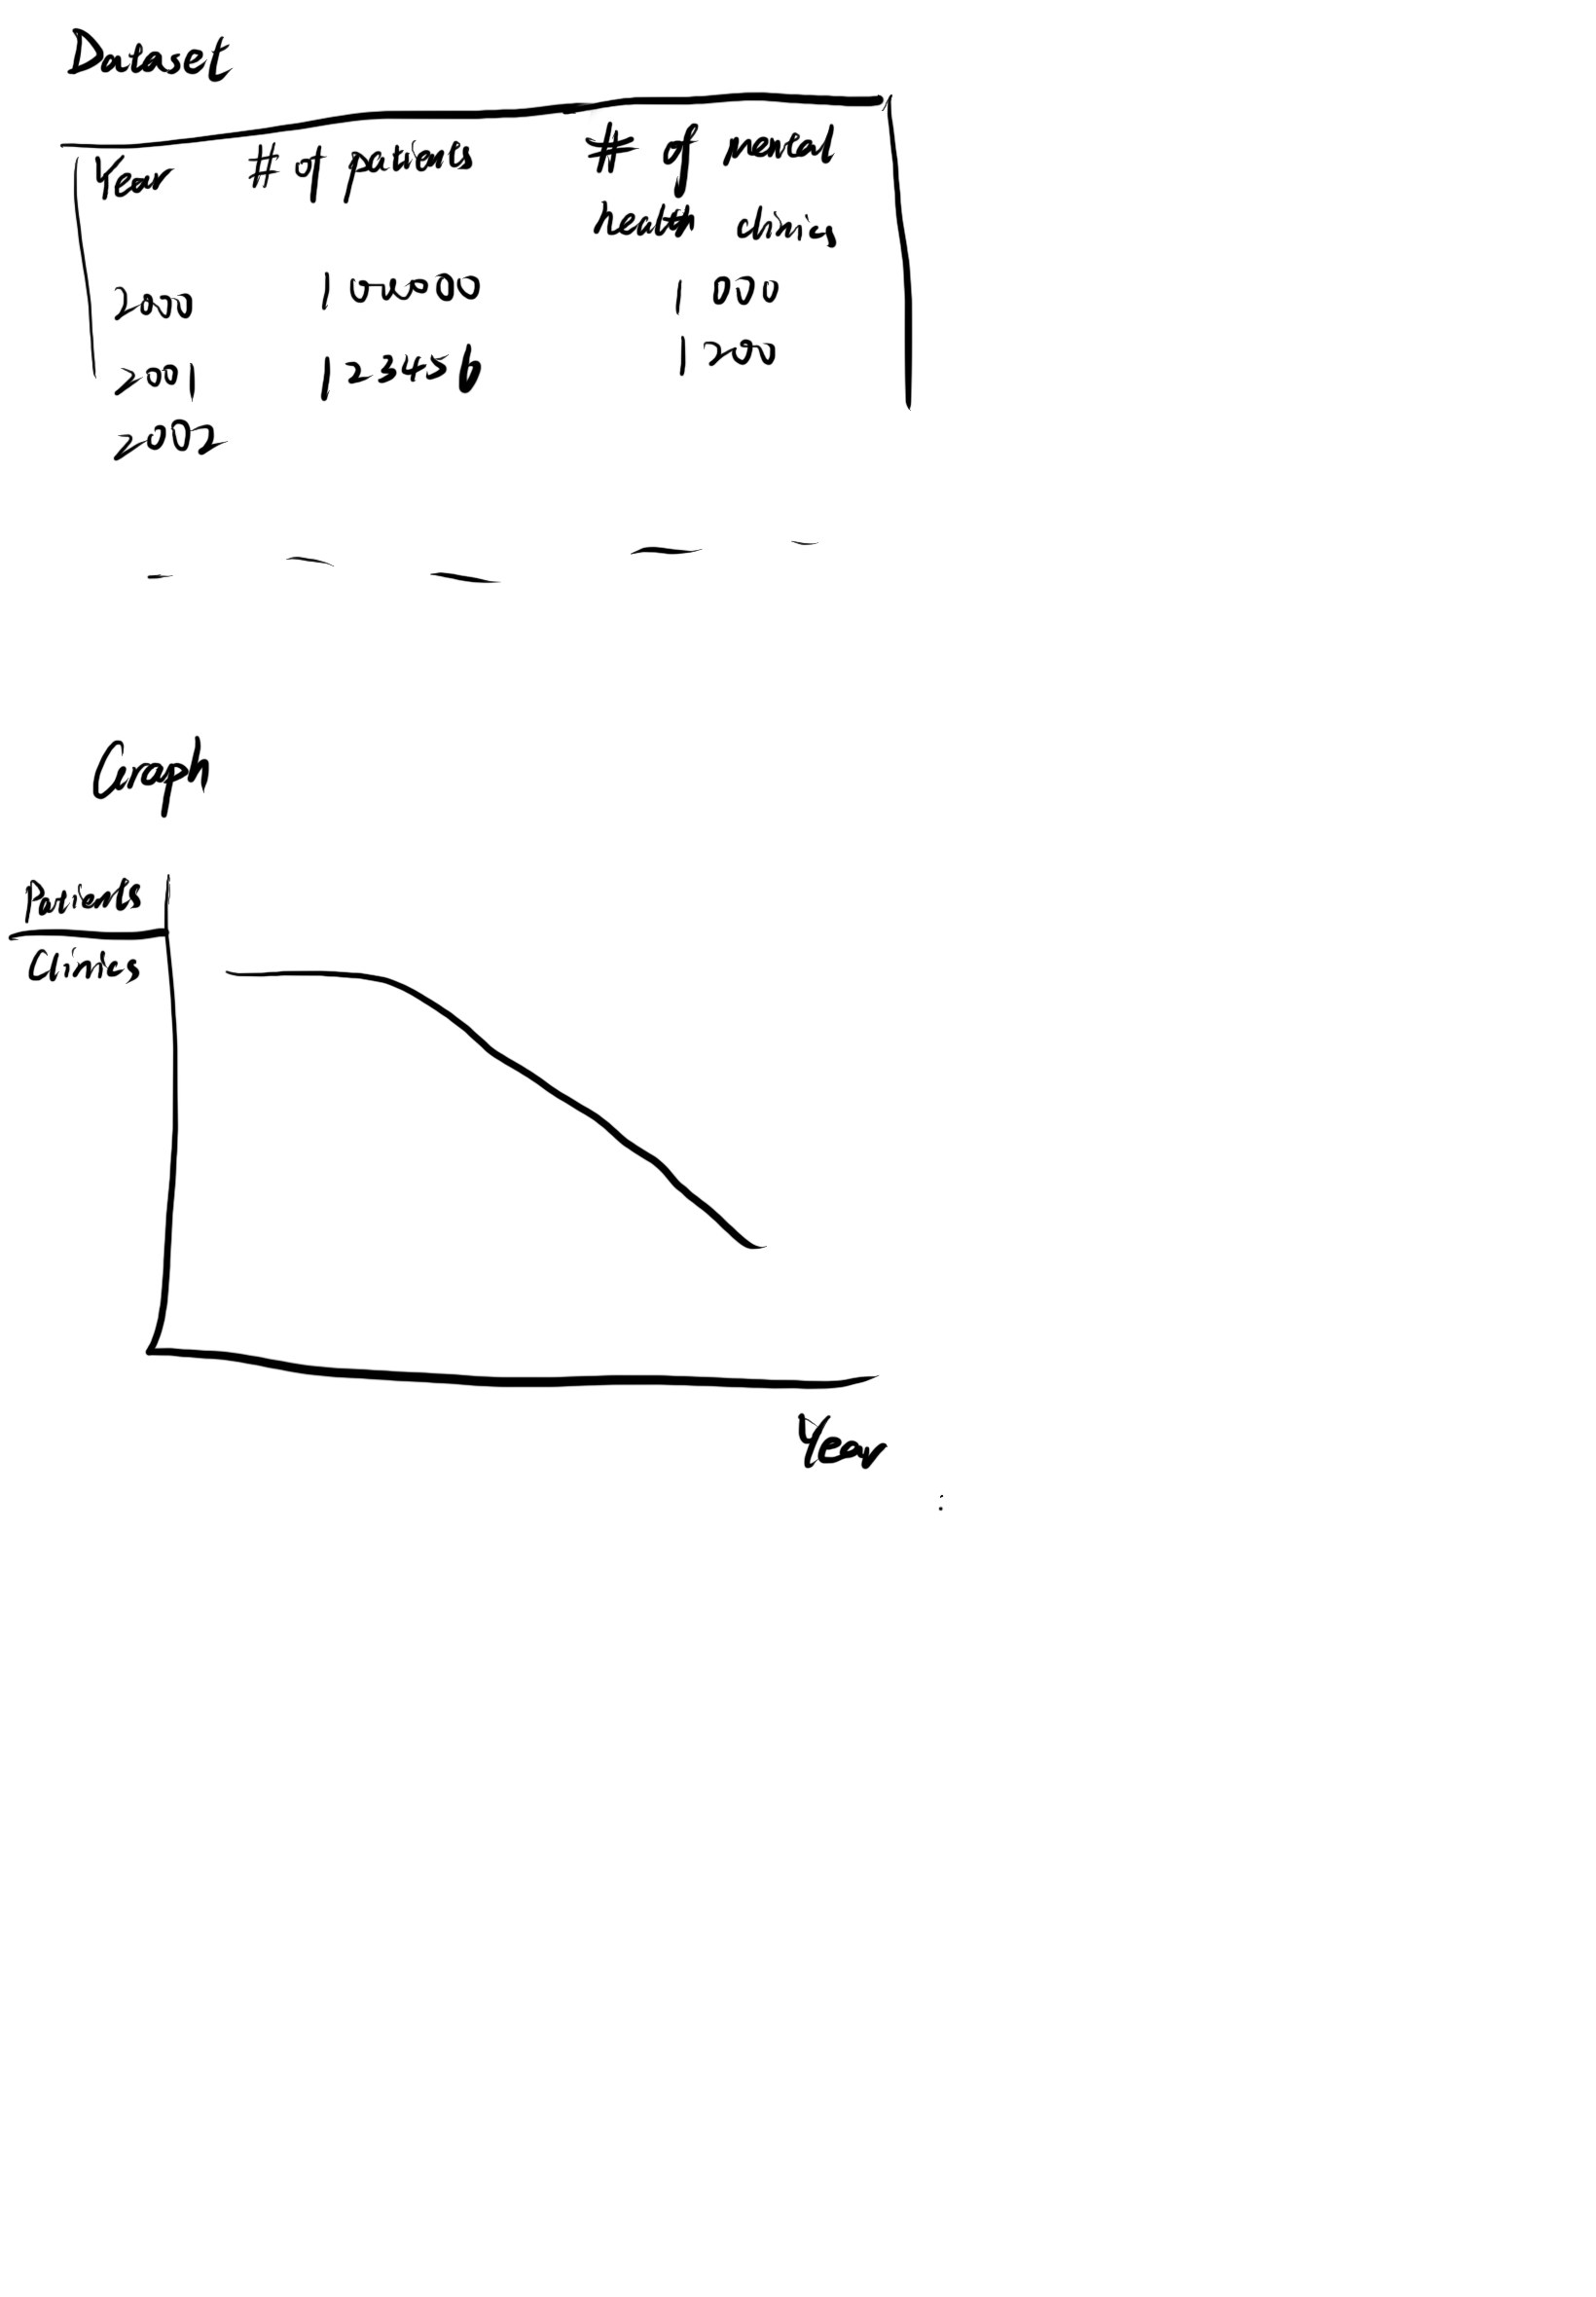 Dataset
Year # of patients # of mental
health clinics
2000 100000 1000
2001 123456 1200
2002
Graph
Patients
Clinics
Year